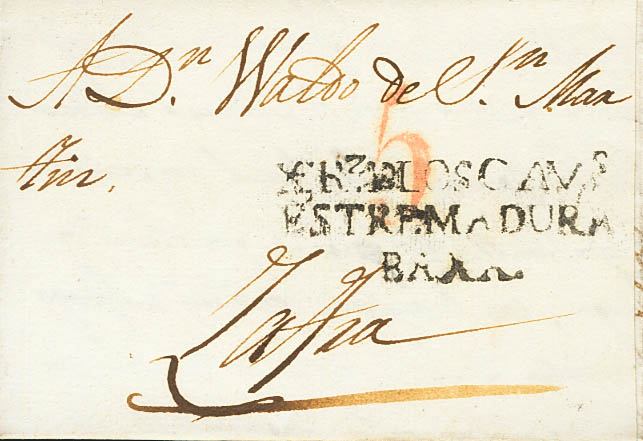 A D.ⁿ Waldo de S.ⁿ Mar
tin.
5
XERᶻDLOSCAVˢ
ESTREMADURA
BAXA.
Zafra